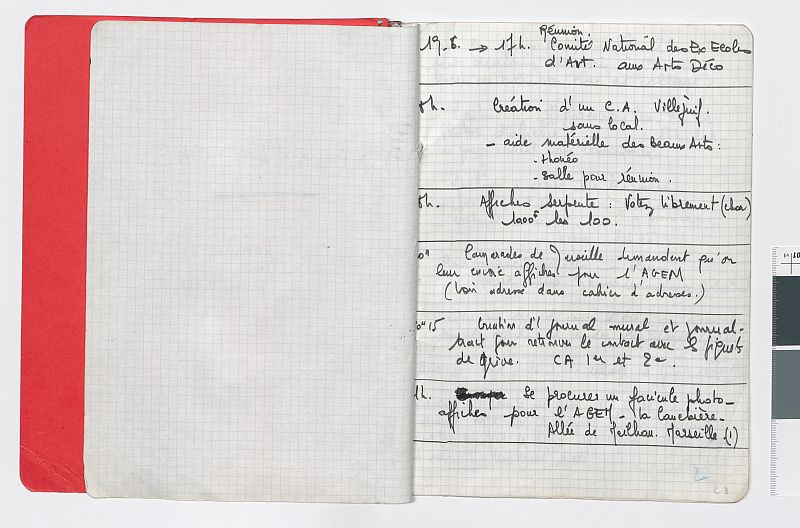 Réunion.
19.6. → 17h. Comité National des Ex Ecoles
d'Art. aux Arts Déco
8h. Création d'un C.A. Villejuif.
sans local.
- aide matérielle des Beaux Arts:
- rhonéo
- salle pour réunion.
8h. Affiches serpente : Votez librement (char)
1000F les 100.
Camarades de Marseille demandent qu'on
leur envoie affiches pour l'AGEM
(Voir adresse dans cahier d'adresses.)
15 Création d'1 journal mural et journal-
tract pour retrouver le contact avec les piquets
de grève. CA 1er et 2e.
1h. Se procurer un facicule photo-
affiches pour l'AGEM - la Canebière -
Allée de Meilhan. Marseille (1)
2